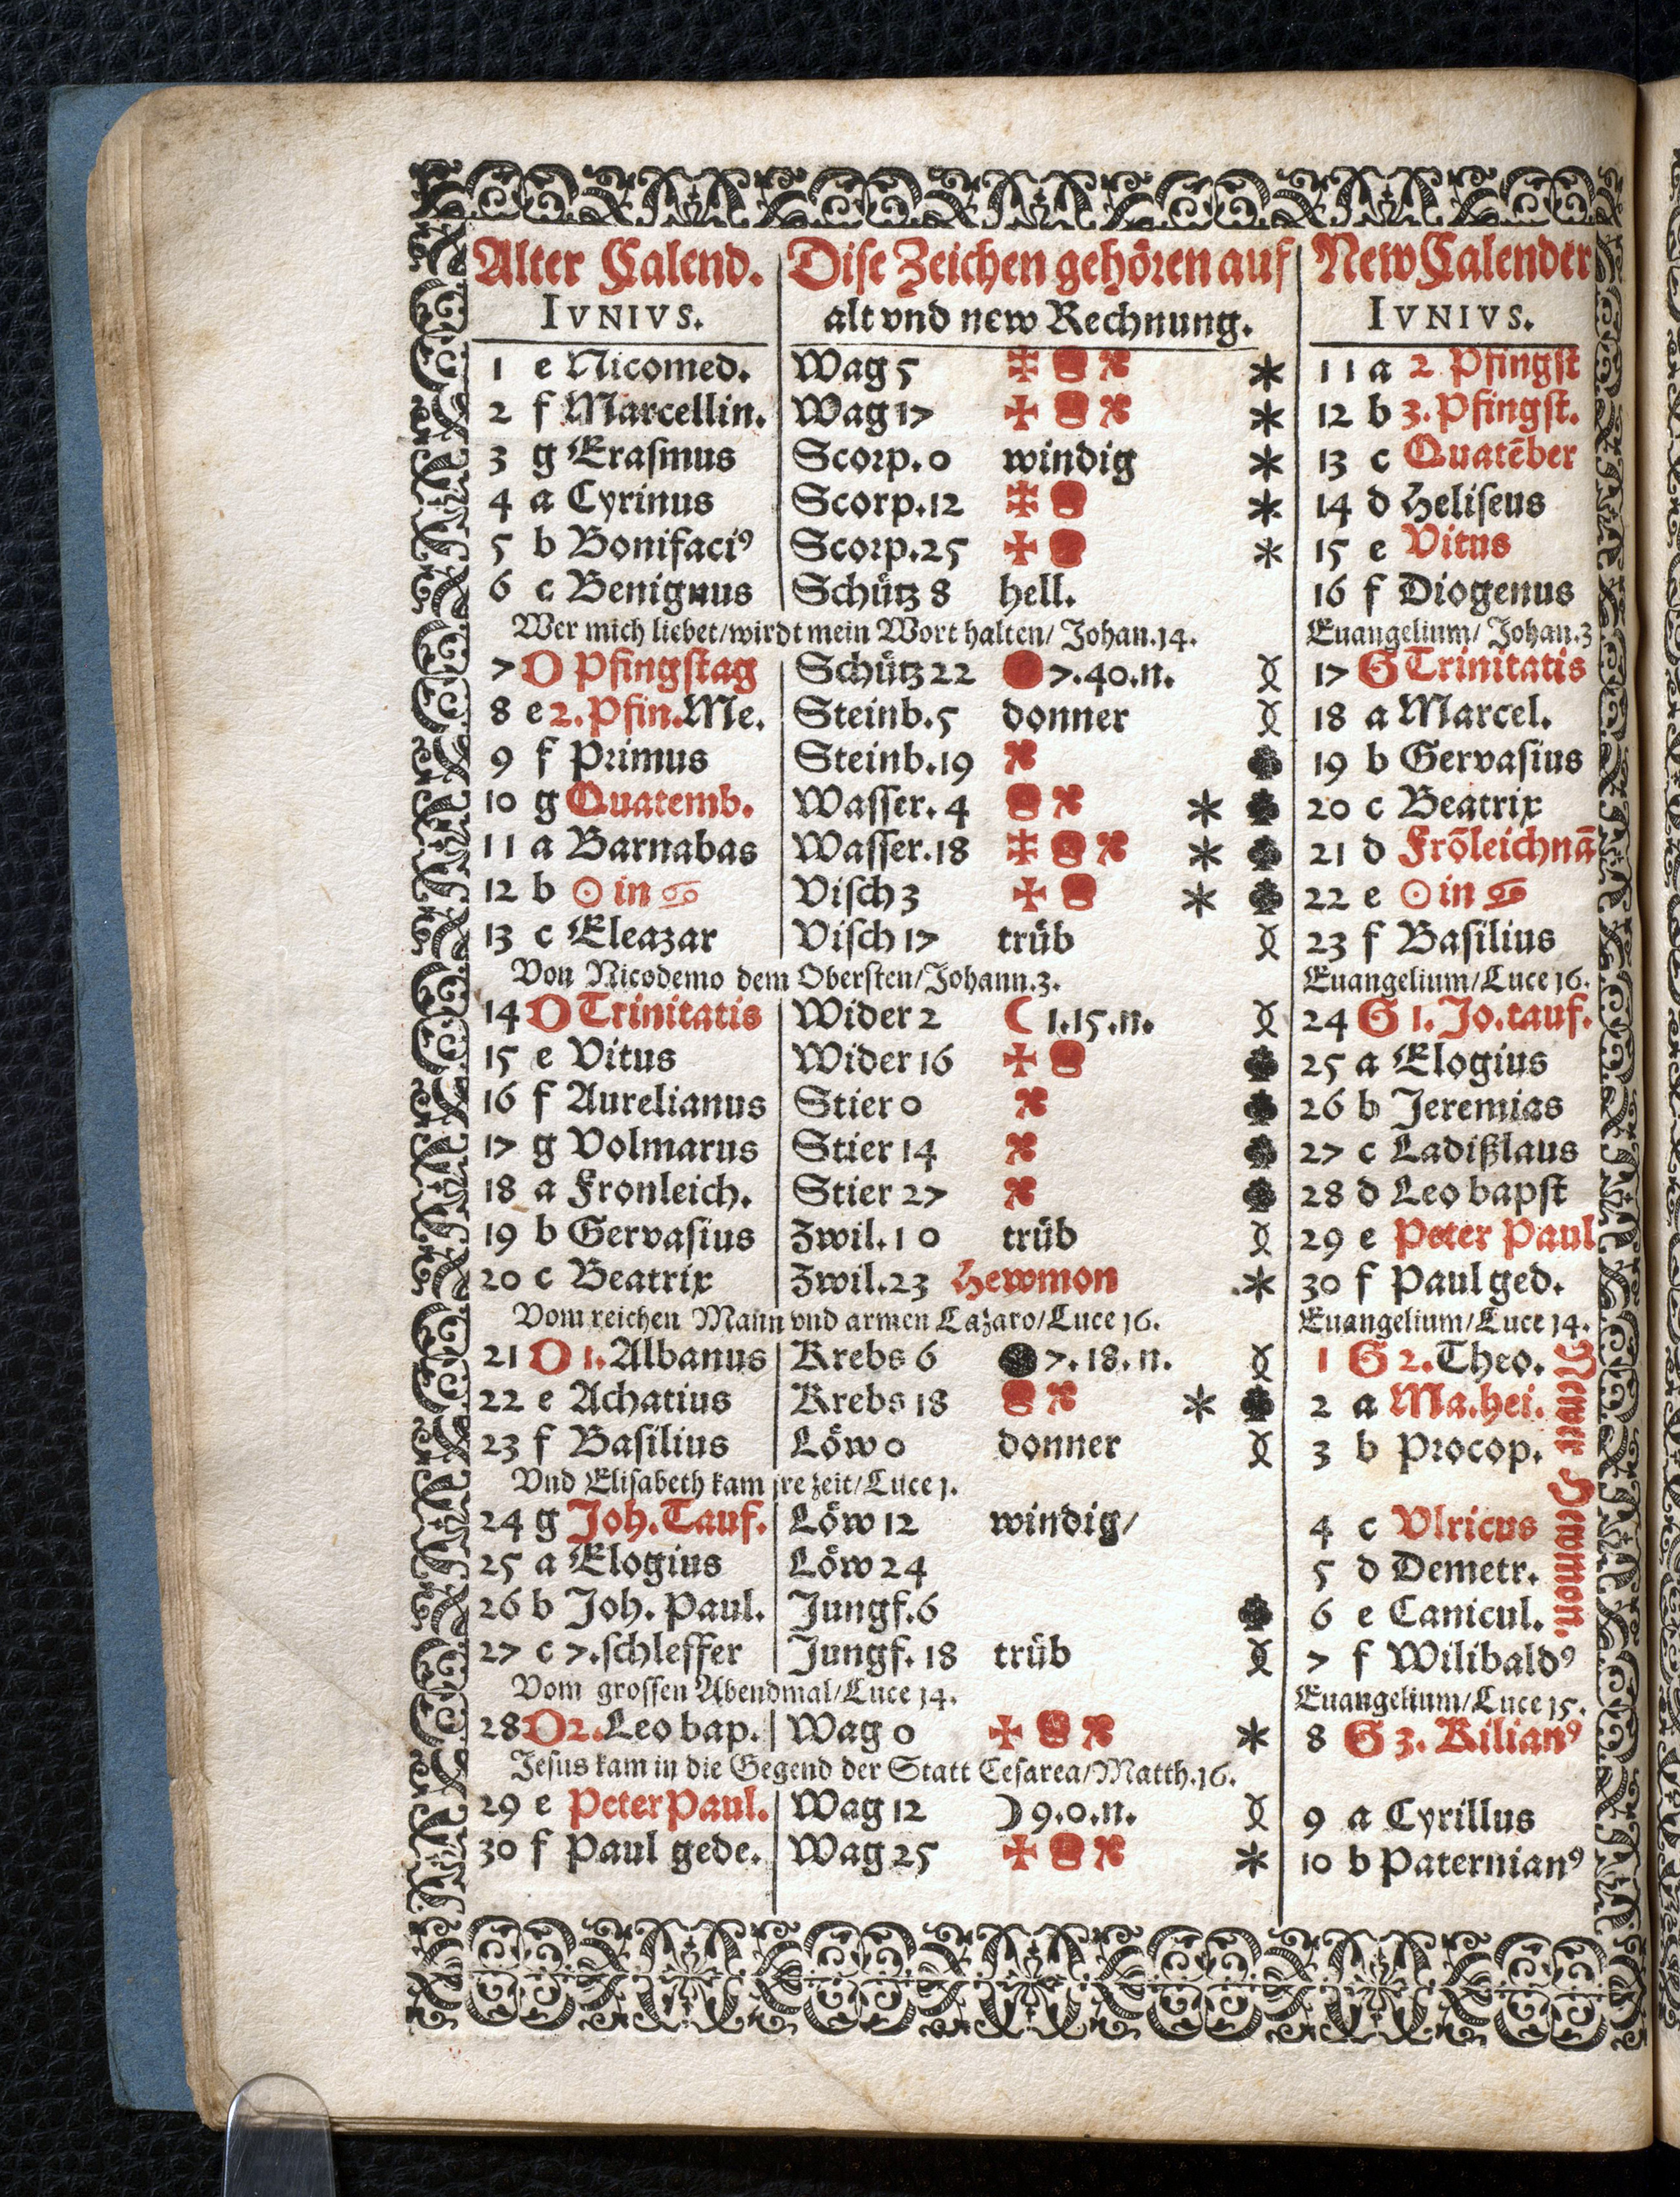 Alter Calend. Dise Zeichen gehören auf New Calender
IVNIVS. alt vnd new Rechnung. IVNIVS.
1 e Nicomed. Wag 5 11 a 2 Pfingst
2 f Marcellin. Wag 17 12 b 3. Pfingst.
3 g Erasmus Scorp. 0 windig 13 c Quatēber
4 a Cyrinus Scorp. 12 14 d Heliseus
5 b Bonifaciꝰ Scorp. 25 15 e Vitus
6 c Benignus Schütz 8 hell. 16 f Diogenus
Wer mich liebet/wirdt mein Wort halten/ Johan. 14. Euangelium/ Johan. 3
7 D Pfingstag Schütz 22 7. 40. n. 17 G Trinitatis
8 e 2. Pfin. Me. Steinb. 5 donner 18 a Marcel.
9 f Primus Steinb. 19 19 b Gervasius
10 g Quatemb. Wasser. 4 20 c Beatrix
11 a Barnabas Wasser. 18 21 d Frōleichnā
12 b ☉ in ♋ Visch 3 22 e ☉ in ♋
13 c Eleazar Visch 17 trüb 23 f Basilius
Von Nicodemo dem Obersten/Johann. 3. Euangelium/Luce 16.
14 D Trinitatis Wider 2 ☾ 1. 15. n. 24 G 1. Jo. tauf.
15 e Vitus Wider 16 25 a Elogius
16 f Aurelianus Stier 0 26 b Jeremias
17 g Volmarus Stier 14 27 c Ladißlaus
18 a Fronleich. Stier 27 28 d Leo bapst
19 b Gervasius Zwil. 10 trüb 29 e Peter Paul
20 c Beatrix Zwil. 23 Hewmon 30 f Paul ged.
Vom reichen Mann vnd armen Lazaro/Luce 16. Euangelium/Luce 14.
21 D 1. Albanus Krebs 6 7. 18. n. 1 G 2. Theo.
22 e Achatius Krebs 18 2 a Ma. hei.
23 f Basilius Löw 0 donner 3 b Procop.
Newer Hewmon.
Vnd Elisabeth kam jre zeit/Luce 1.
24 g Joh. Tauf. Löw 12 windig/ 4 c Vlricus
25 a Elogius Löw 24 5 d Demetr.
26 b Joh. Paul. Jungf. 6 6 e Canicul.
27 c 7. schleffer Jungf. 18 trüb 7 f Wilibaldꝰ
Vom grossen Abendmal/Luce 14. Euangelium/Luce 15.
28 D 2. Leo bap. Wag 0 8 G 3. Kilianꝰ
Jesus kam in die Gegend der Statt Cesarea/Matth. 16.
29 e Peter Paul. Wag 12 ☽ 9. 0. n. 9 a Cyrillus
30 f Paul gede. Wag 25 10 b Paternianꝰ